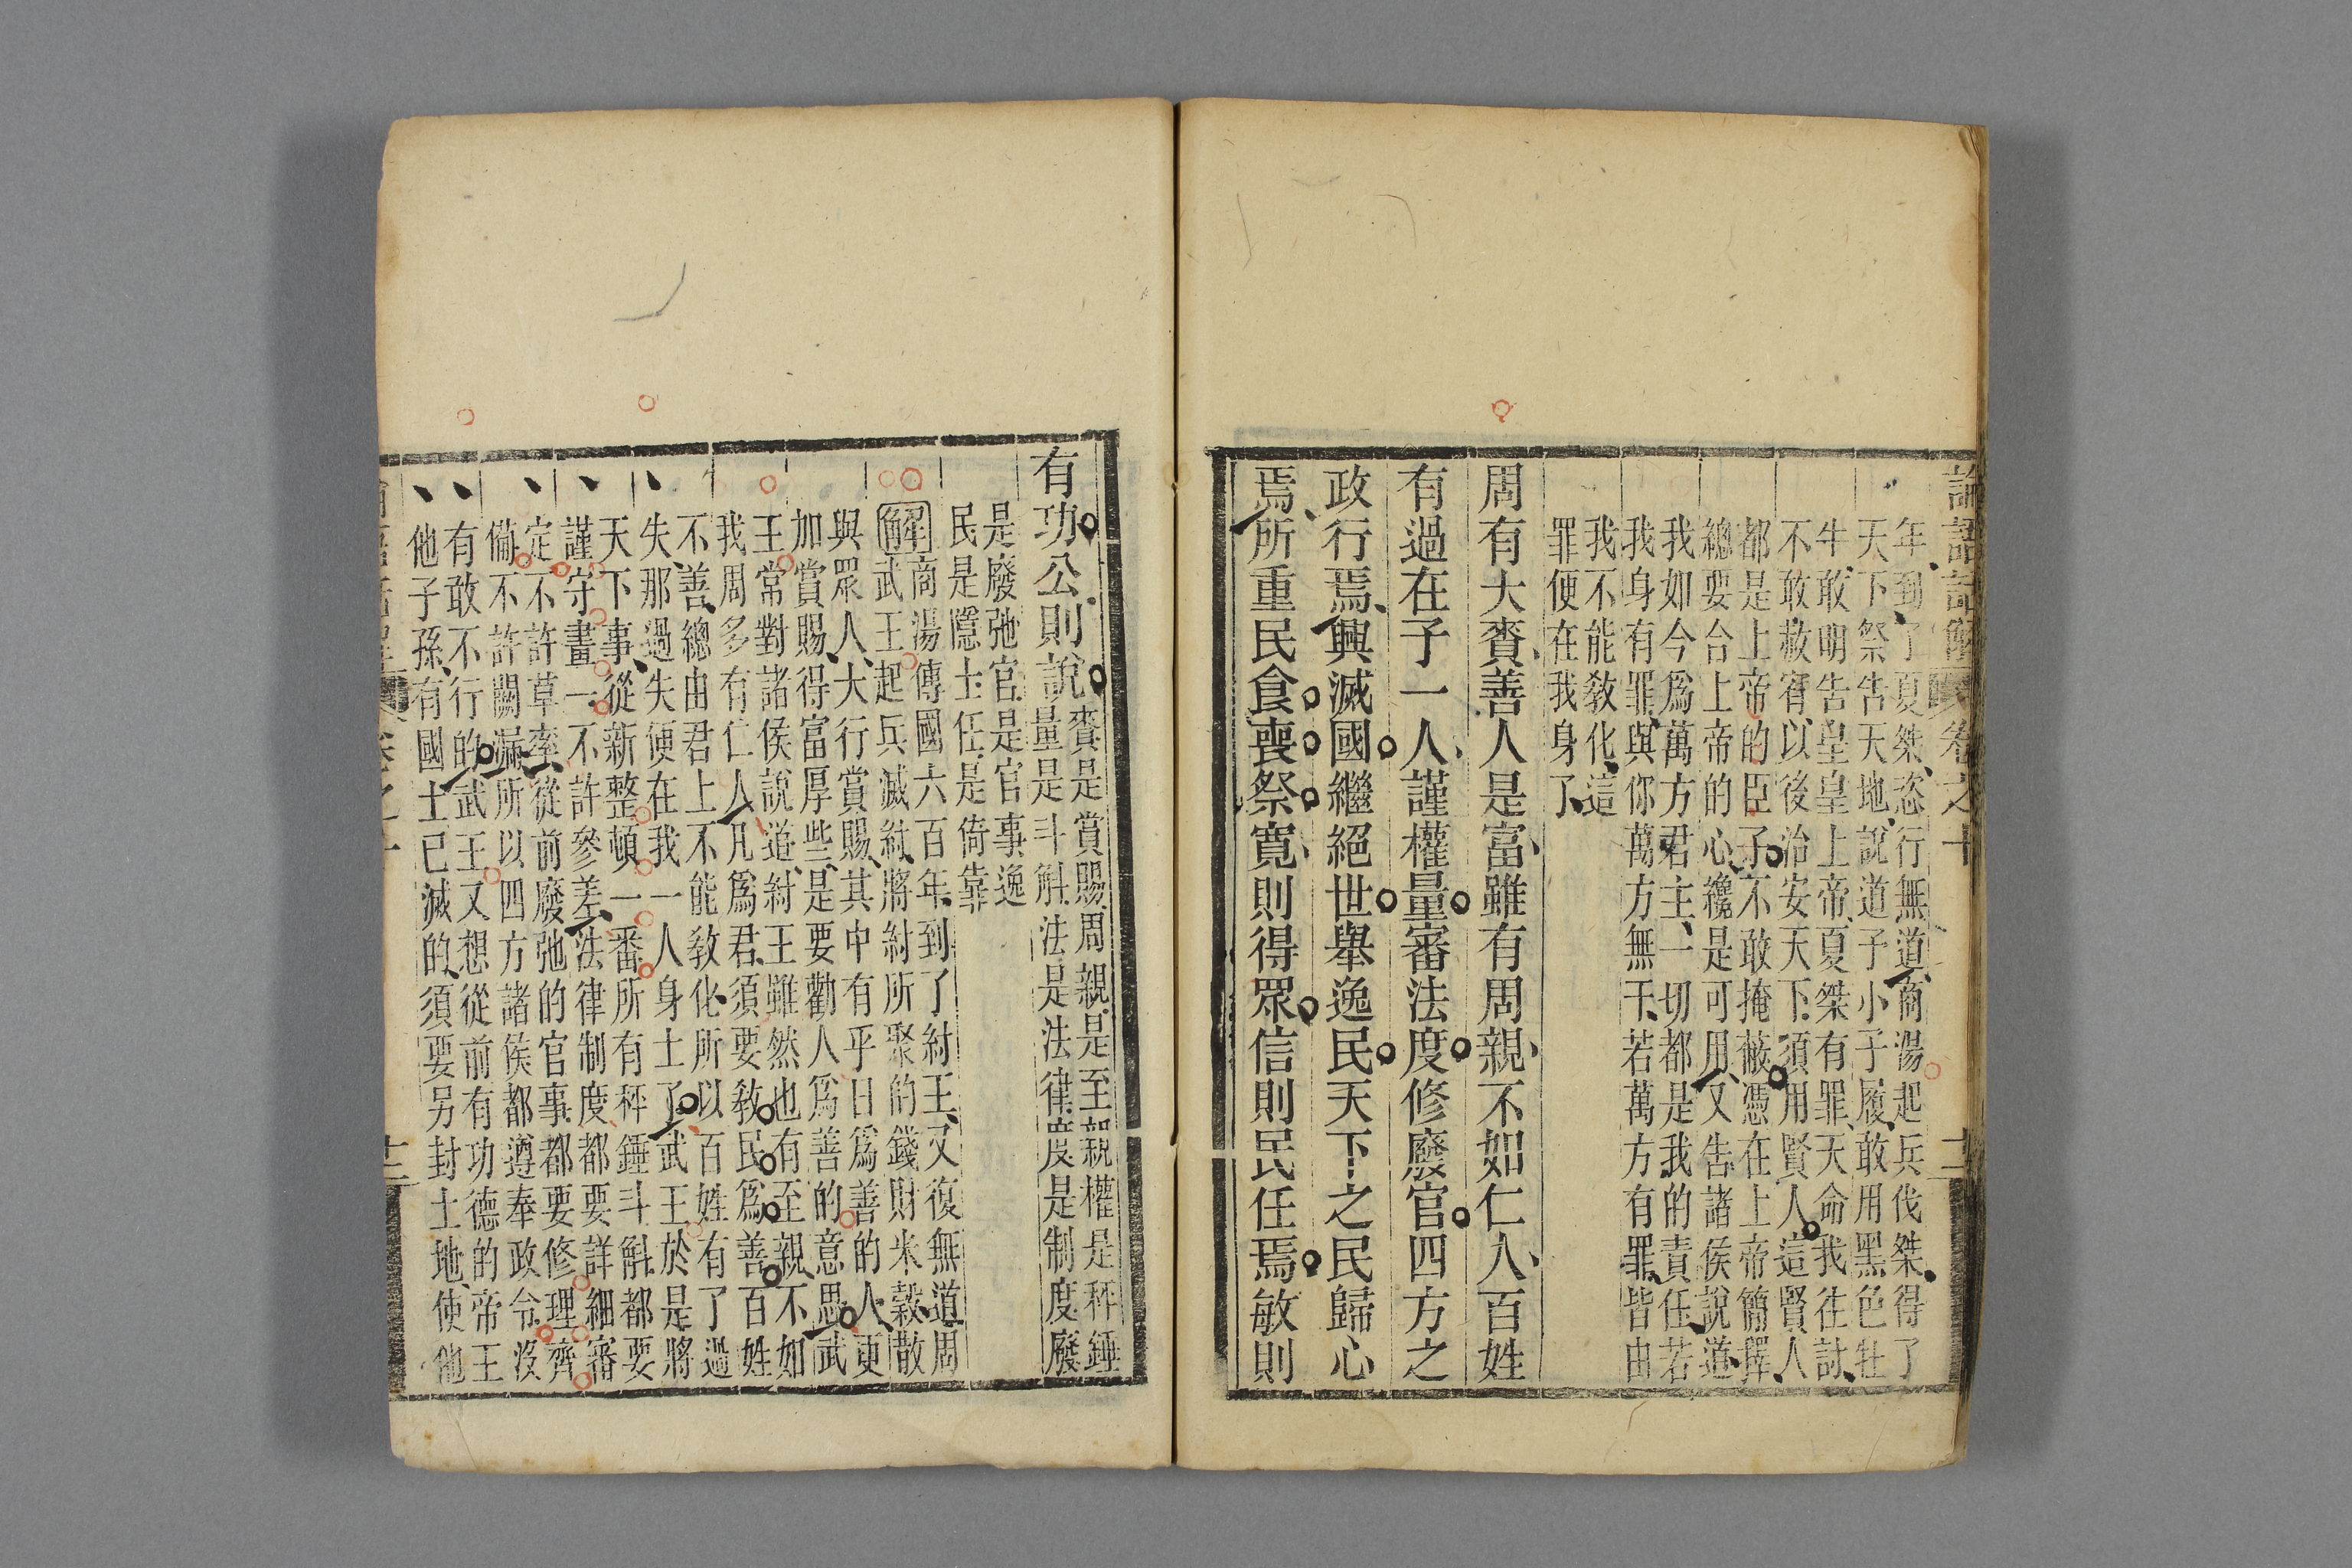 論語話解 卷之十 十二
年、到了夏桀、恣行無道、商湯起兵伐桀、得了
天下、祭告天地、說道予小子履、敢用黑色牡
牛、敢明告皇皇上帝、夏桀有罪、天命我往討、
不敢赦宥、以後治安天下、須用賢人、這賢人、
都是上帝的臣子、不敢掩蔽、憑在上帝簡擇、
總要合上帝的心、纔是可用、又告諸侯說道、
我如今爲萬方君主、一切都是我的責任、若
我身有罪、與你萬方無干、若萬方有罪、皆由
我不能敎化、這
罪便在我身了、
周有大賚、善人是富、雖有周親、不如仁人、百姓
有過在予一人、謹權量審法度修廢官四方之
政行焉、興滅國繼絕世舉逸民天下之民歸心
焉、所重民食喪祭寬則得眾信則民任焉敏則
有功公則說
賚是賞賜周親是至親權是秤錘
量是斗斛法是法律度是制度廢
是廢弛官是官事逸
民是隱士任是倚靠
解 商湯傳國六百年、到了紂王、又復無道、周
武王起兵滅紂、將紂所聚的錢財米穀、散
與眾人、大行賞賜、其中有平日爲善的人、更
加賞賜、得富厚些、是要勸人爲善的意思、武
王常對諸侯說道、紂王雖然也有至親、不如
我周多有仁人、凡爲君、須要敎民爲善、百姓
不善、總由君上不能敎化、所以百姓有了過
失、那過失便在我一人身上了、武王於是將
天下事、從新整頓一番、所有秤錘斗斛、都要
謹守畫一、不許參差、法律制度、都要詳細審
定、不許草率、從前廢弛的官事、都要修理齊
備、不許闕漏、所以四方諸侯、都遵奉政令、沒
有敢不行的、武王又想從前有功德的帝王
他子孫、有國土已滅的、須要另封土地、使他